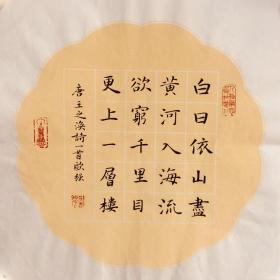 白日依山盡
黃河入海流
欲窮千里目
更上一層樓
唐王之渙詩一首歐強